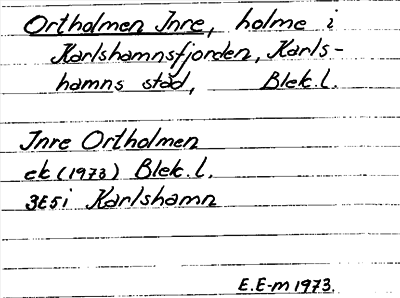 Ortholmen Inre, holme i
Karlshamnsfjorden, Karls-
hamns stad, Blek.l.
Inre Ortholmen
ek (1973) Blek.l.
3E5i Karlshamn
E.E-m 1973.